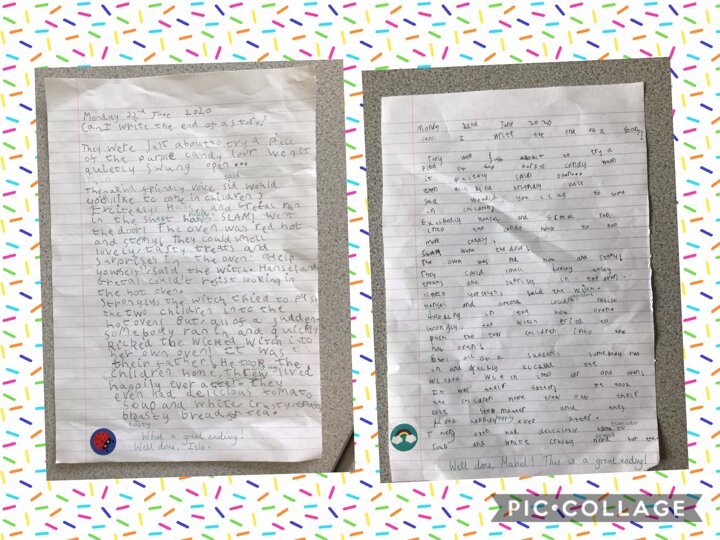 Monday 22nd June 2020
Can I write the end of a story?
They were just about to try a piece
of the purple candy door wen it
quietly swung open...
said
Then a kind friendly voice sid would
you like to come in children?
Excitedly Hansel and Gretal ran
in the sweet house SLAM! went
the door! The oven was red hot
and stemy! They could smell
lovely, tasty treats and
suprorises in the oven. Help
yourself! said the witch. Hansel and
Gretal couldn't resist looking in
the hot oven.
Strongly, the witch tried to push
the two children into the
hot oven! But all of a sudden
somebody ran in and quickly
kicked the wicked witch into
her own oven! It was
their father! He took the
children home, lived
happily ever after. They
even had delicious tomato
soup and white crusty
bready bread for tea.
What a great ending!
Well done, Isla.
Monday 22nd June 2020
can I write the end of a story?
They were just about to try a
piece of the purple candy when
it quickly open...
then kind friendly voice
said would you like to come
in children?
Hansel and Gretal ran
into the candy house to eat
more candy.
SLAM went the door!
The oven was red hot and stemy!
They could smell
treats and suprises in the oven.
yourself, said the witch.
Hansel and couldn't resist
looking in the hot oven.
strongly, the witch tried to
push the two children into the
hot oven!
But all of a sudden somebody ran
in and quickly kicked the
wicked witch into her own oven!
It was their father, he took
the children home their
and they
lived happily ever after.
They even had delicious
tomato
soup and white bread for tea.
Well done, Mabel! This is a great ending!
PIC•COLLAGE